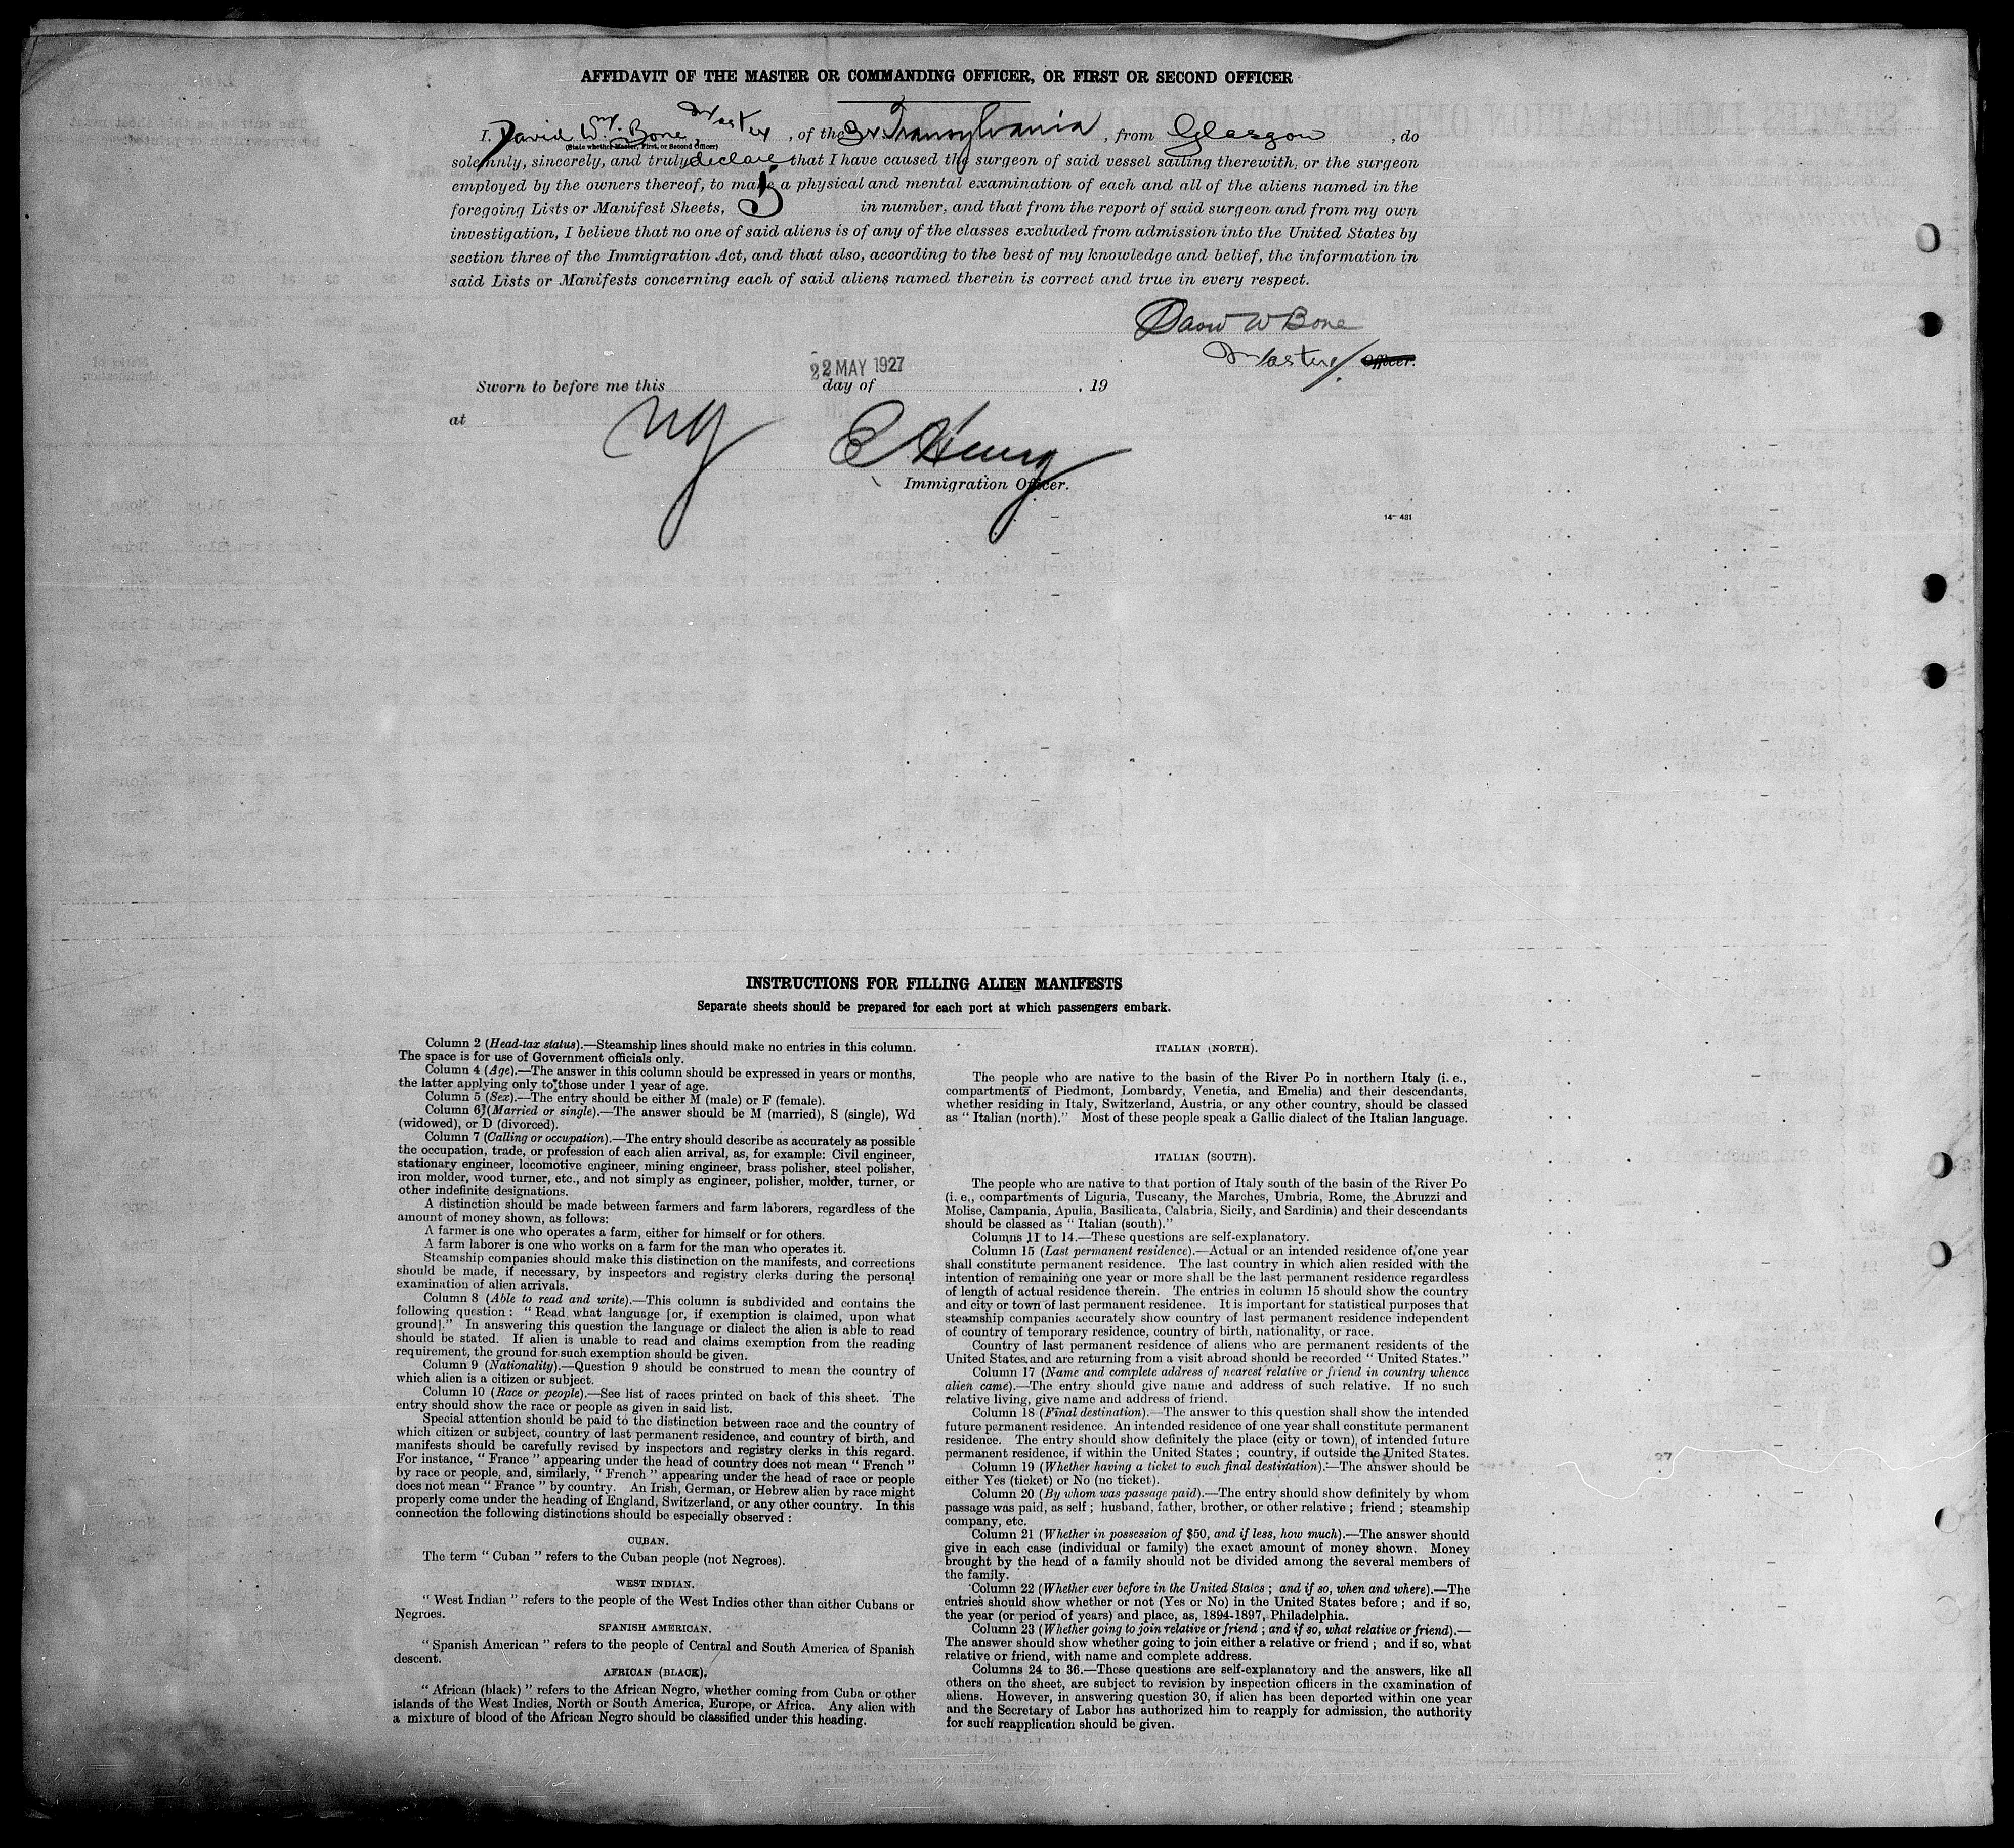 AFFIDAVIT OF THE MASTER OR COMMANDING OFFICER, OR FIRST OR SECOND OFFICER
I, David Wm. Bone, Master, of the Transylvania, from Glasgow, do
(State whether Master, First, or Second Officer)
solemnly, sincerely, and truly declare that I have caused the surgeon of said vessel sailing therewith, or the surgeon
employed by the owners thereof, to make a physical and mental examination of each and all of the aliens named in the
foregoing Lists or Manifest Sheets, 5 in number, and that from the report of said surgeon and from my own
investigation, I believe that no one of said aliens is of any of the classes excluded from admission into the United States by
section three of the Immigration Act, and that also, according to the best of my knowledge and belief, the information in
said Lists or Manifests concerning each of said aliens named therein is correct and true in every respect.
David W Bone
Master Officer.
22 MAY 1927
Sworn to before me this day of , 19
at NY
C Henry
Immigration Officer.
14-431
INSTRUCTIONS FOR FILLING ALIEN MANIFESTS
Separate sheets should be prepared for each port at which passengers embark.
Column 2 (Head-tax status).—Steamship lines should make no entries in this column.
The space is for use of Government officials only.
Column 4 (Age).—The answer in this column should be expressed in years or months,
the latter applying only to those under 1 year of age.
Column 5 (Sex).—The entry should be either M (male) or F (female).
Column 6 (Married or single).—The answer should be M (married), S (single), Wd
(widowed), or D (divorced).
Column 7 (Calling or occupation).—The entry should describe as accurately as possible
the occupation, trade, or profession of each alien arrival, as, for example: Civil engineer,
stationary engineer, locomotive engineer, mining engineer, brass polisher, steel polisher,
iron molder, wood turner, etc., and not simply as engineer, polisher, molder, turner, or
other indefinite designations.
A distinction should be made between farmers and farm laborers, regardless of the
amount of money shown, as follows:
A farmer is one who operates a farm, either for himself or for others.
A farm laborer is one who works on a farm for the man who operates it.
Steamship companies should make this distinction on the manifests, and corrections
should be made, if necessary, by inspectors and registry clerks during the personal
examination of alien arrivals.
Column 8 (Able to read and write).—This column is subdivided and contains the
following question: "Read what language [or, if exemption is claimed, upon what
ground]." In answering this question the language or dialect the alien is able to read
should be stated. If alien is unable to read and claims exemption from the reading
requirement, the ground for such exemption should be given.
Column 9 (Nationality).—Question 9 should be construed to mean the country of
which alien is a citizen or subject.
Column 10 (Race or people).—See list of races printed on back of this sheet. The
entry should show the race or people as given in said list.
Special attention should be paid to the distinction between race and the country of
which citizen or subject, country of last permanent residence, and country of birth, and
manifests should be carefully revised by inspectors and registry clerks in this regard.
For instance, "France" appearing under the head of country does not mean "French"
by race or people, and, similarly, "French" appearing under the head of race or people
does not mean "France" by country. An Irish, German, or Hebrew alien by race might
properly come under the heading of England, Switzerland, or any other country. In this
connection the following distinctions should be especially observed:
CUBAN.
The term "Cuban" refers to the Cuban people (not Negroes).
WEST INDIAN.
"West Indian" refers to the people of the West Indies other than either Cubans or
Negroes.
SPANISH AMERICAN.
"Spanish American" refers to the people of Central and South America of Spanish
descent.
AFRICAN (BLACK).
"African (black)" refers to the African Negro, whether coming from Cuba or other
islands of the West Indies, North or South America, Europe, or Africa. Any alien with
a mixture of blood of the African Negro should be classified under this heading.
ITALIAN (NORTH).
The people who are native to the basin of the River Po in northern Italy (i. e.,
compartments of Piedmont, Lombardy, Venetia, and Emelia) and their descendants,
whether residing in Italy, Switzerland, Austria, or any other country, should be classed
as "Italian (north)." Most of these people speak a Gallic dialect of the Italian language.
ITALIAN (SOUTH).
The people who are native to that portion of Italy south of the basin of the River Po
(i. e., compartments of Liguria, Tuscany, the Marches, Umbria, Rome, the Abruzzi and
Molise, Campania, Apulia, Basilicata, Calabria, Sicily, and Sardinia) and their descendants
should be classed as "Italian (south)."
Columns 11 to 14.—These questions are self-explanatory.
Column 15 (Last permanent residence).—Actual or an intended residence of one year
shall constitute permanent residence. The last country in which alien resided with the
intention of remaining one year or more shall be the last permanent residence regardless
of length of actual residence therein. The entries in column 15 should show the country
and city or town of last permanent residence. It is important for statistical purposes that
steamship companies accurately show country of last permanent residence independent
of country of temporary residence, country of birth, nationality, or race.
Country of last permanent residence of aliens who are permanent residents of the
United States and are returning from a visit abroad should be recorded "United States."
Column 17 (Name and complete address of nearest relative or friend in country whence
alien came).—The entry should give name and address of such relative. If no such
relative living, give name and address of friend.
Column 18 (Final destination).—The answer to this question shall show the intended
future permanent residence. An intended residence of one year shall constitute permanent
residence. The entry should show definitely the place (city or town), of intended future
permanent residence, if within the United States; country, if outside the United States.
Column 19 (Whether having a ticket to such final destination).—The answer should be
either Yes (ticket) or No (no ticket).
Column 20 (By whom was passage paid).—The entry should show definitely by whom
passage was paid, as self; husband, father, brother, or other relative; friend; steamship
company, etc.
Column 21 (Whether in possession of $50, and if less, how much).—The answer should
give in each case (individual or family) the exact amount of money shown. Money
brought by the head of a family should not be divided among the several members of
the family.
Column 22 (Whether ever before in the United States; and if so, when and where).—The
entries should show whether or not (Yes or No) in the United States before; and if so,
the year (or period of years) and place, as, 1894-1897, Philadelphia.
Column 23 (Whether going to join relative or friend; and if so, what relative or friend).—
The answer should show whether going to join either a relative or friend; and if so, what
relative or friend, with name and complete address.
Columns 24 to 36.—These questions are self-explanatory and the answers, like all
others on the sheet, are subject to revision by inspection officers in the examination of
aliens. However, in answering question 30, if alien has been deported within one year
and the Secretary of Labor has authorized him to reapply for admission, the authority
for such reapplication should be given.